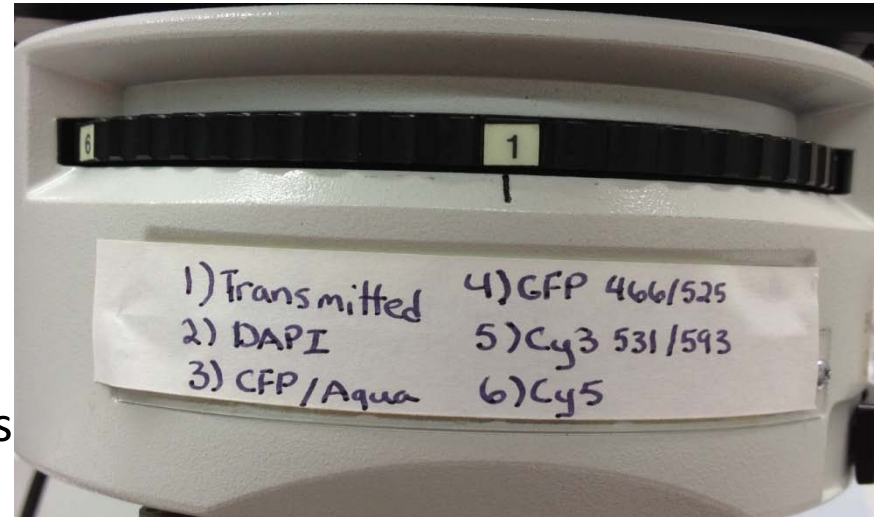 6
1
1) Transmitted
2) DAPI
3) CFP/Aqua
4) GFP 466/525
5) Cy3 531/593
6) Cy5
s